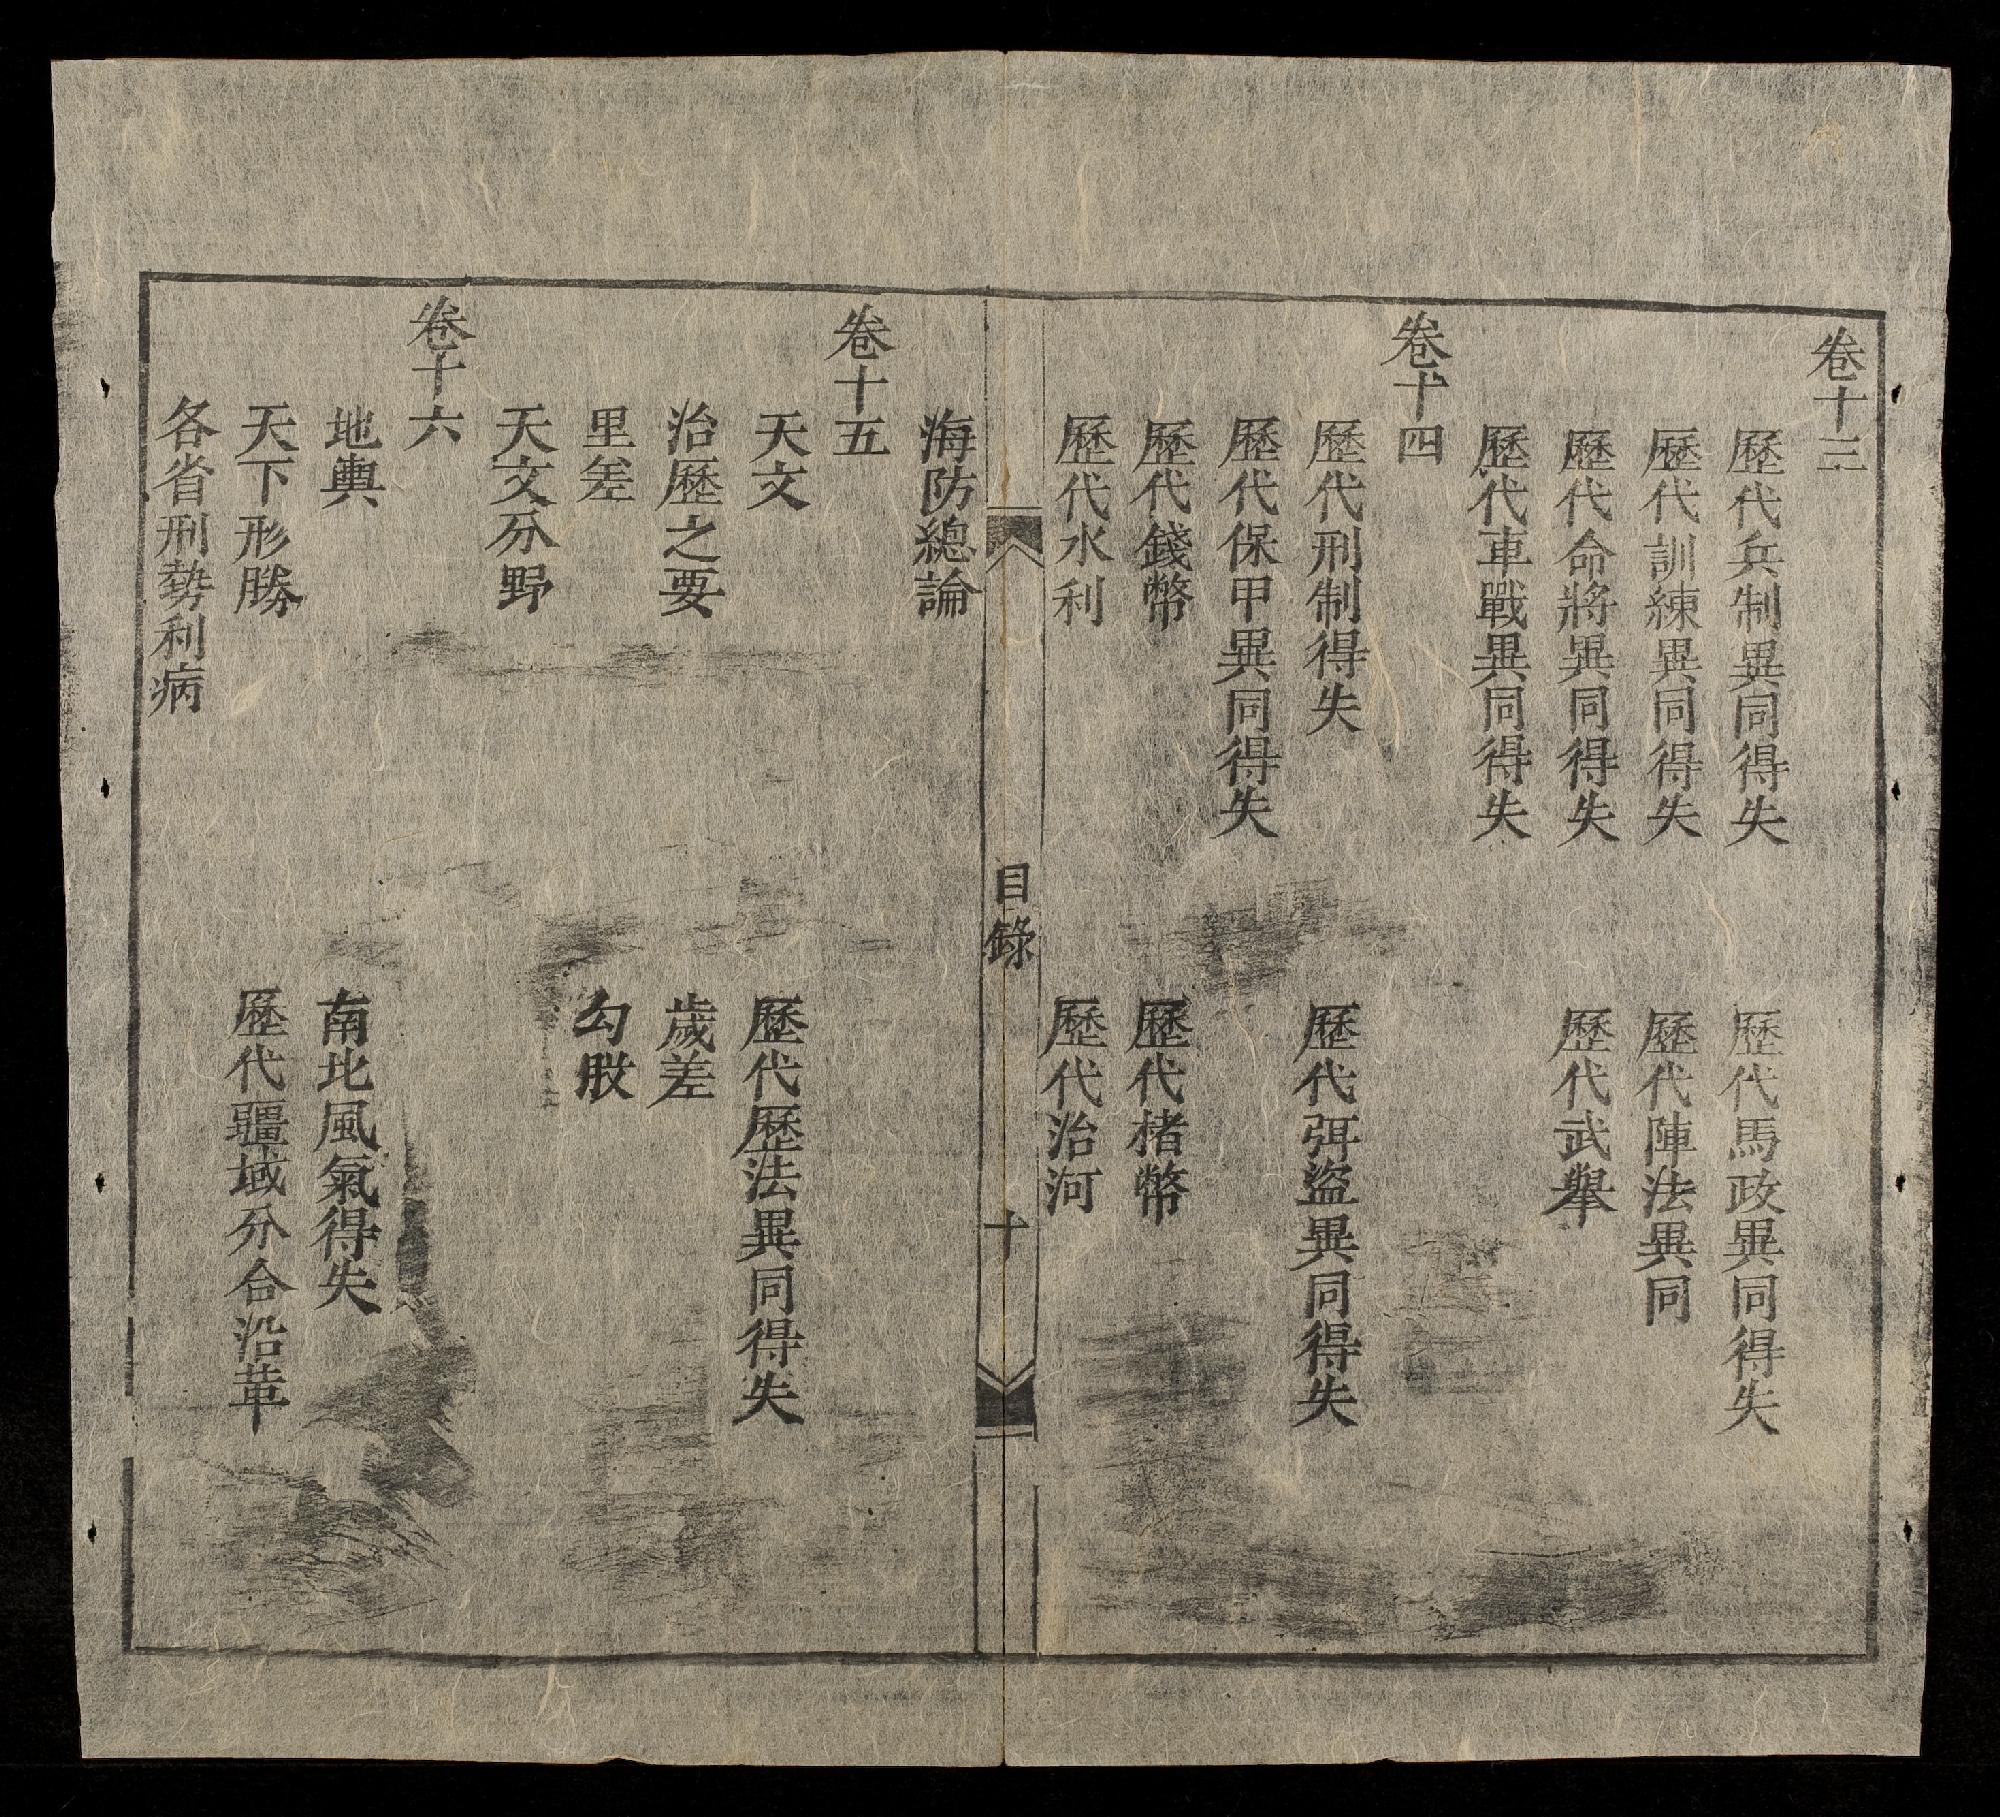 卷十三
歷代兵制異同得失　歷代馬政異同得失
歷代訓練異同得失　歷代陣法異同
歷代命將異同得失　歷代武舉
歷代車戰異同得失
卷十四
歷代刑制得失　歷代弭盜異同得失
歷代保甲異同得失
歷代錢幣　歷代楮幣
歷代水利　歷代治河
目錄　十
海防總論
卷十五
天文　歷代歷法異同得失
治歷之要　歲差
里差　勾股
天文分野
卷十六
地輿　南北風氣得失
天下形勝　歷代疆域分合沿革
各省刑勢利病